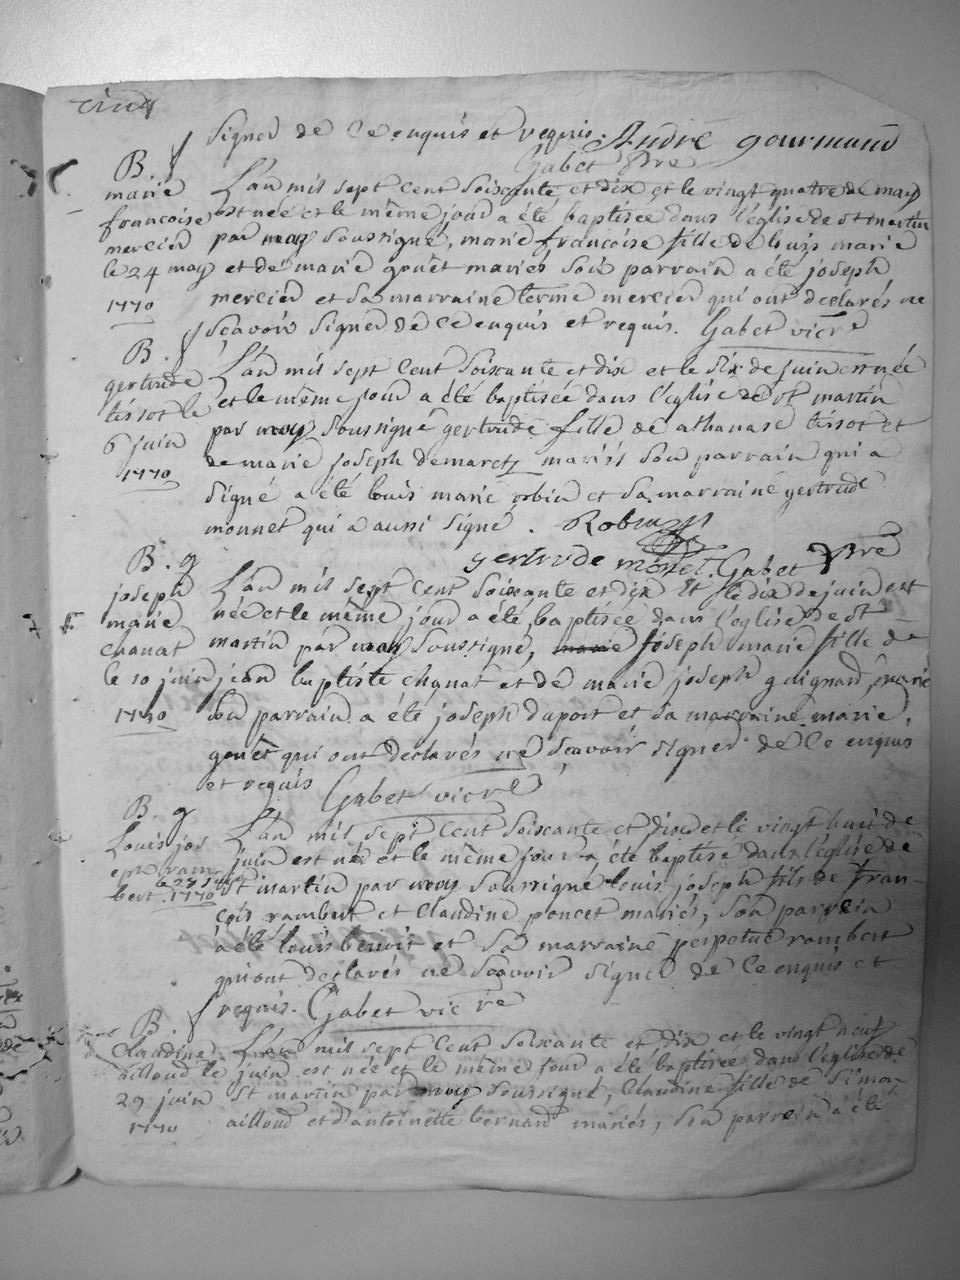 cinq
signer de ce enquis et requis. André gourmand
Gabet Pre
B.
marie
francoise
mercier
le 24 may
1770
L'an mil sept cent soixante et dix et le vingt quatre de may
est née et le même jour a été baptisée dans l'église de st martin
par moy soussigné, marie francoise fille de louis marie
et de marie gouët mariés son parrain a été joseph
mercier et sa marraine mercier qui ont declarés ne
scavoir signer de ce enquis et requis. Gabet vicre
B.
gertrude
tissot le
6 juin
1770
L'an mil sept cent soixante et dix et le six de juin est née
et le même jour a été baptisée dans l'église de st martin
par moy soussigné gertrude fille de athanase tissot et
de marie joseph demaretz mariés son parrain qui a
signé a été louis marie robin et sa marraine gertrude
monnet qui a aussi signé. Robin
gertrude monet. Gabet Pre
B. g
joseph
marie
chanat
le 10 juin
1770
L'an mil sept cent soixante et dix et le dix de juin est
née et le même jour a été baptisée dans l'église de st
martin par moy soussigné, marie joseph marie fille de
jean baptiste et de marie joseph guignard mariés
son parrain a été joseph duport et sa marraine marie
gouët qui ont declarés ne scavoir signer de ce enquis
et requis Gabet vicre
B. g
Louis jos
eph ram
bert le 28 juin 1770
L'an mil sept cent soixante et dix et le vingt huit de
juin est né et le même jour a été baptisé dans l'église de
st martin par moy soussigné louis joseph fils de fran-
çois rambert et Claudine poncet mariés, son parrain
a été louis benoit et sa marraine perpetue rambert
qui ont declarés ne scavoir signer de ce enquis et
requis. Gabet vicre
B.
Claudine
ailloud le
29 juin
1770
L'an mil sept cent soixante et dix et le vingt neuf
juin est née et le même jour a été baptisée dans l'église de
st martin par moy soussigné, Claudine fille de simon
ailloud et d'antoinette bernard mariés, son parrain a été